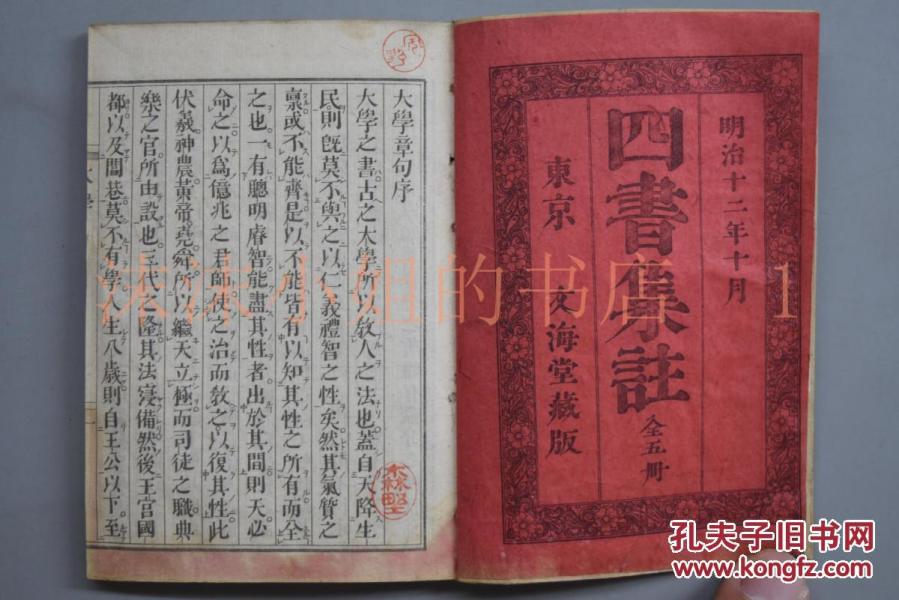 明治十二年十月
四書集註
全五冊
東京 文海堂藏版
大學章句序
大學之書古之大學所以教人之法也蓋自天降生
民則既莫不與之以仁義禮智之性矣然其氣質之
稟或不能齊是以不能皆有以知其性之所有而全
之也一有聰明睿智能盡其性者出於其間則天必
命之以爲億兆之君師使之治而教之以復其性此
伏羲神農黃帝堯舜所以繼天立極而司徒之職典
樂之官所由設也三代之隆其法寖備然後王宮國
都以及閭巷莫不有學人生八歲則自王公以下至
小姐的书店
1
孔夫子旧书网
www.kongfz.com